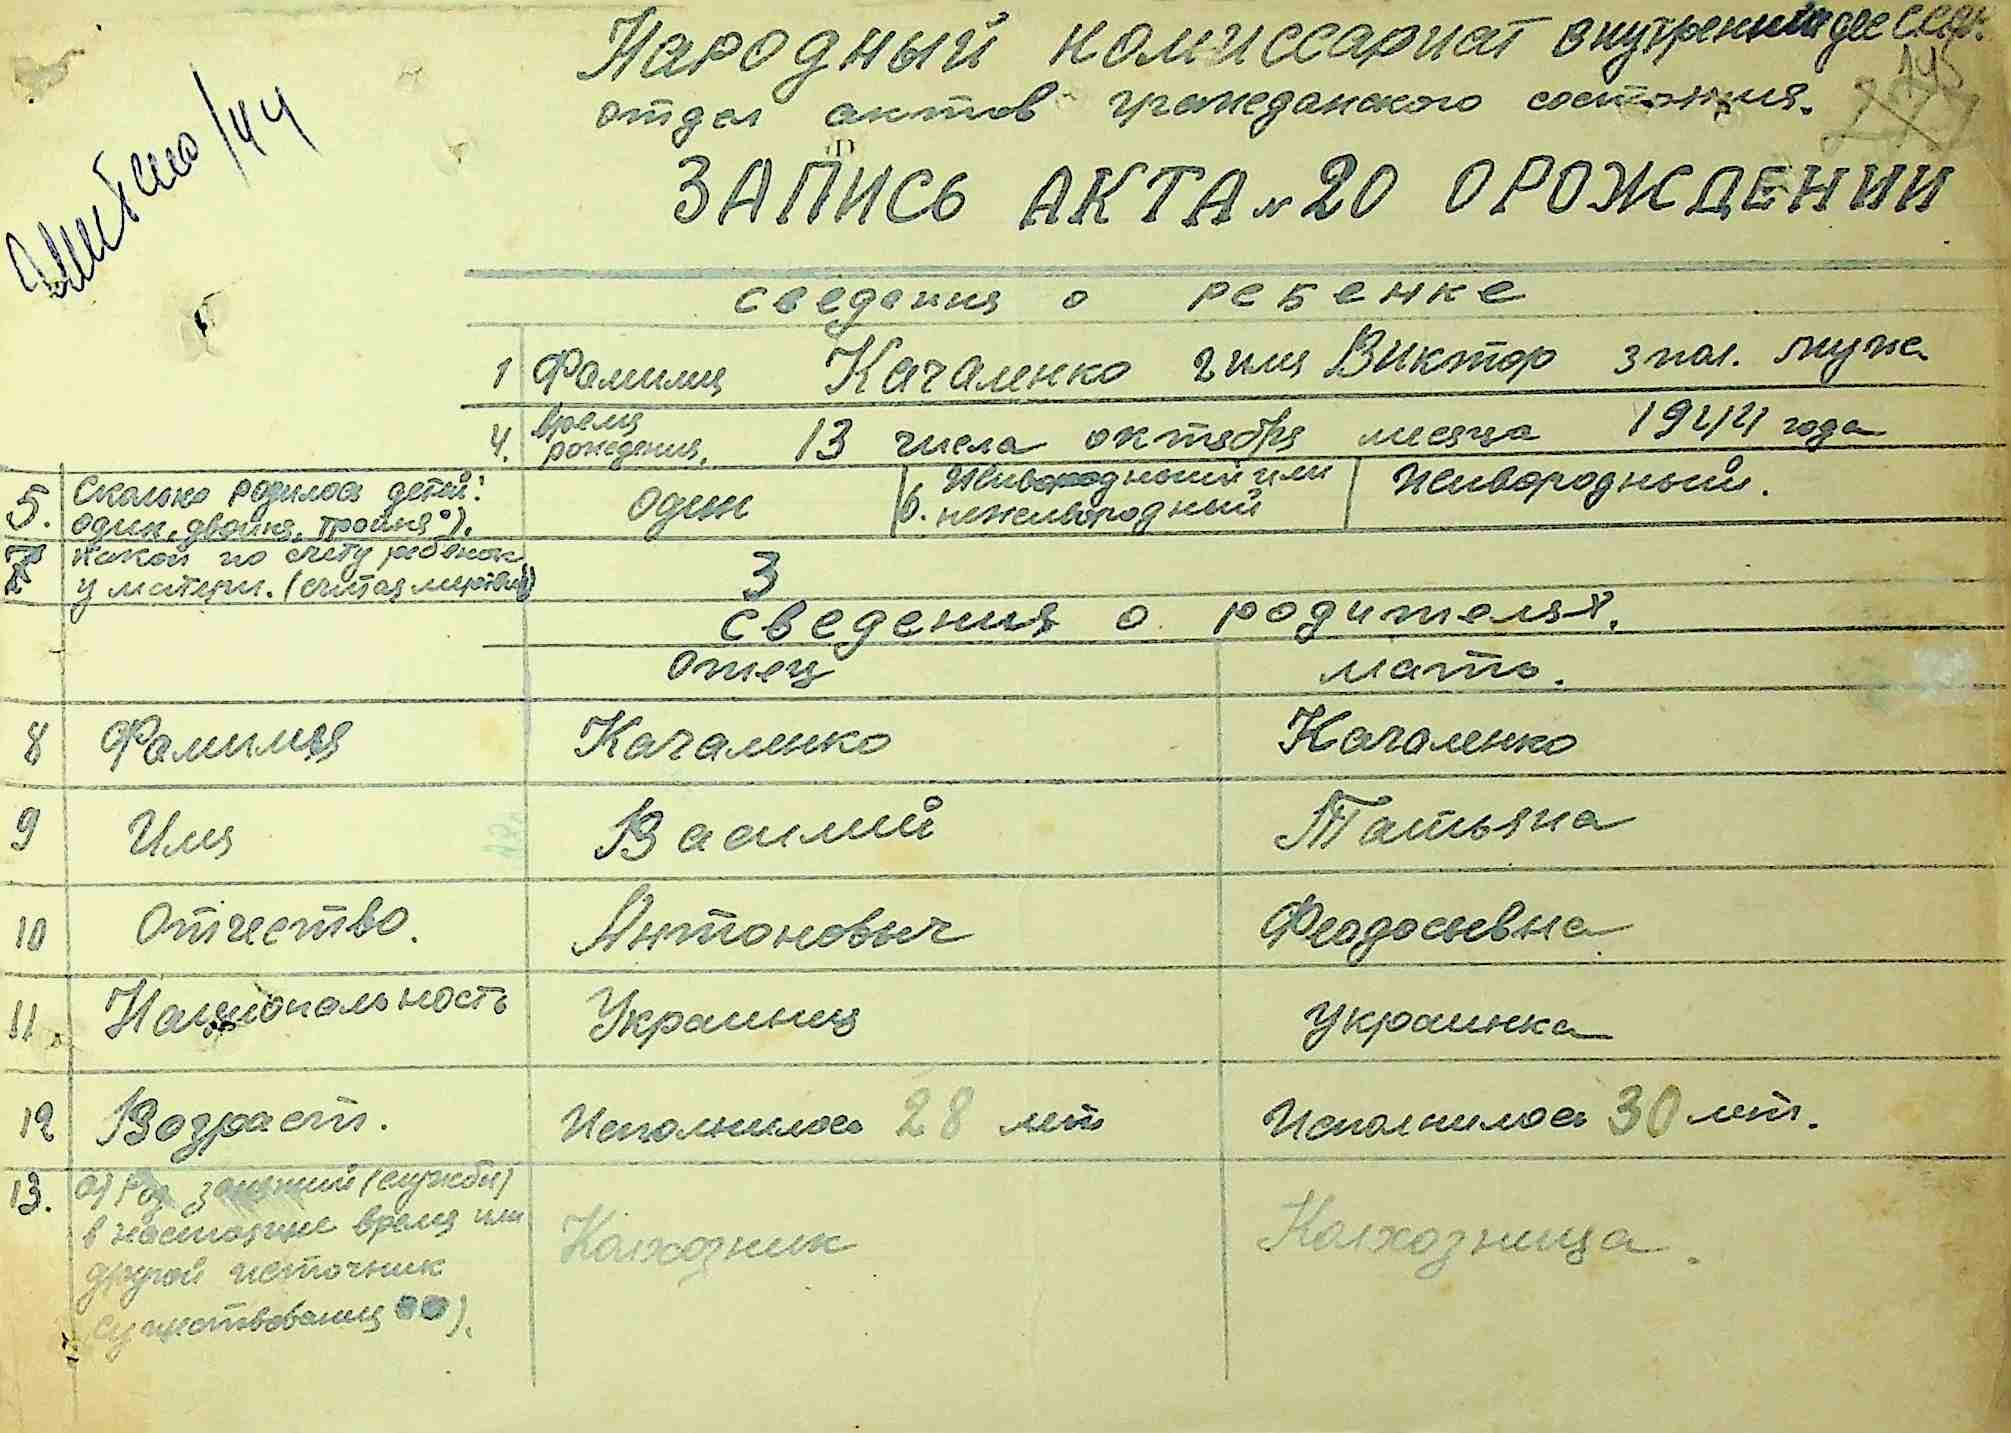 Народный комиссариат внутренних дел СССР.
отдел актов гражданского состояния.
145
ЗАПИСЬ АКТА № 20 О РОЖДЕНИИ
сведения о ребенке
1 Фамилия Качаленко 2 имя Виктор 3 пол. мужс
4. время рождения. 13 числа октября месяца 1944 года
5. Сколько родилось детей: один, двойня, тройня°). один 6. Живородный или неживородный Живородный.
7 Какой по счету ребенок у матери. (считая мертвых) 3
сведения о родителях.
отец мать.
8 Фамилия Качаленко Качаленко
9 Имя Василий Татьяна
10 Отчество. Антонович Феодосьевна
11. Национальность Украинец Украинка
12 Возраст. Исполнилось 28 лет Исполнилось 30 лет.
13. а) Род занятий (службы)
в настоящие время или Колхозник Колхозница.
другой источник
существования °°).